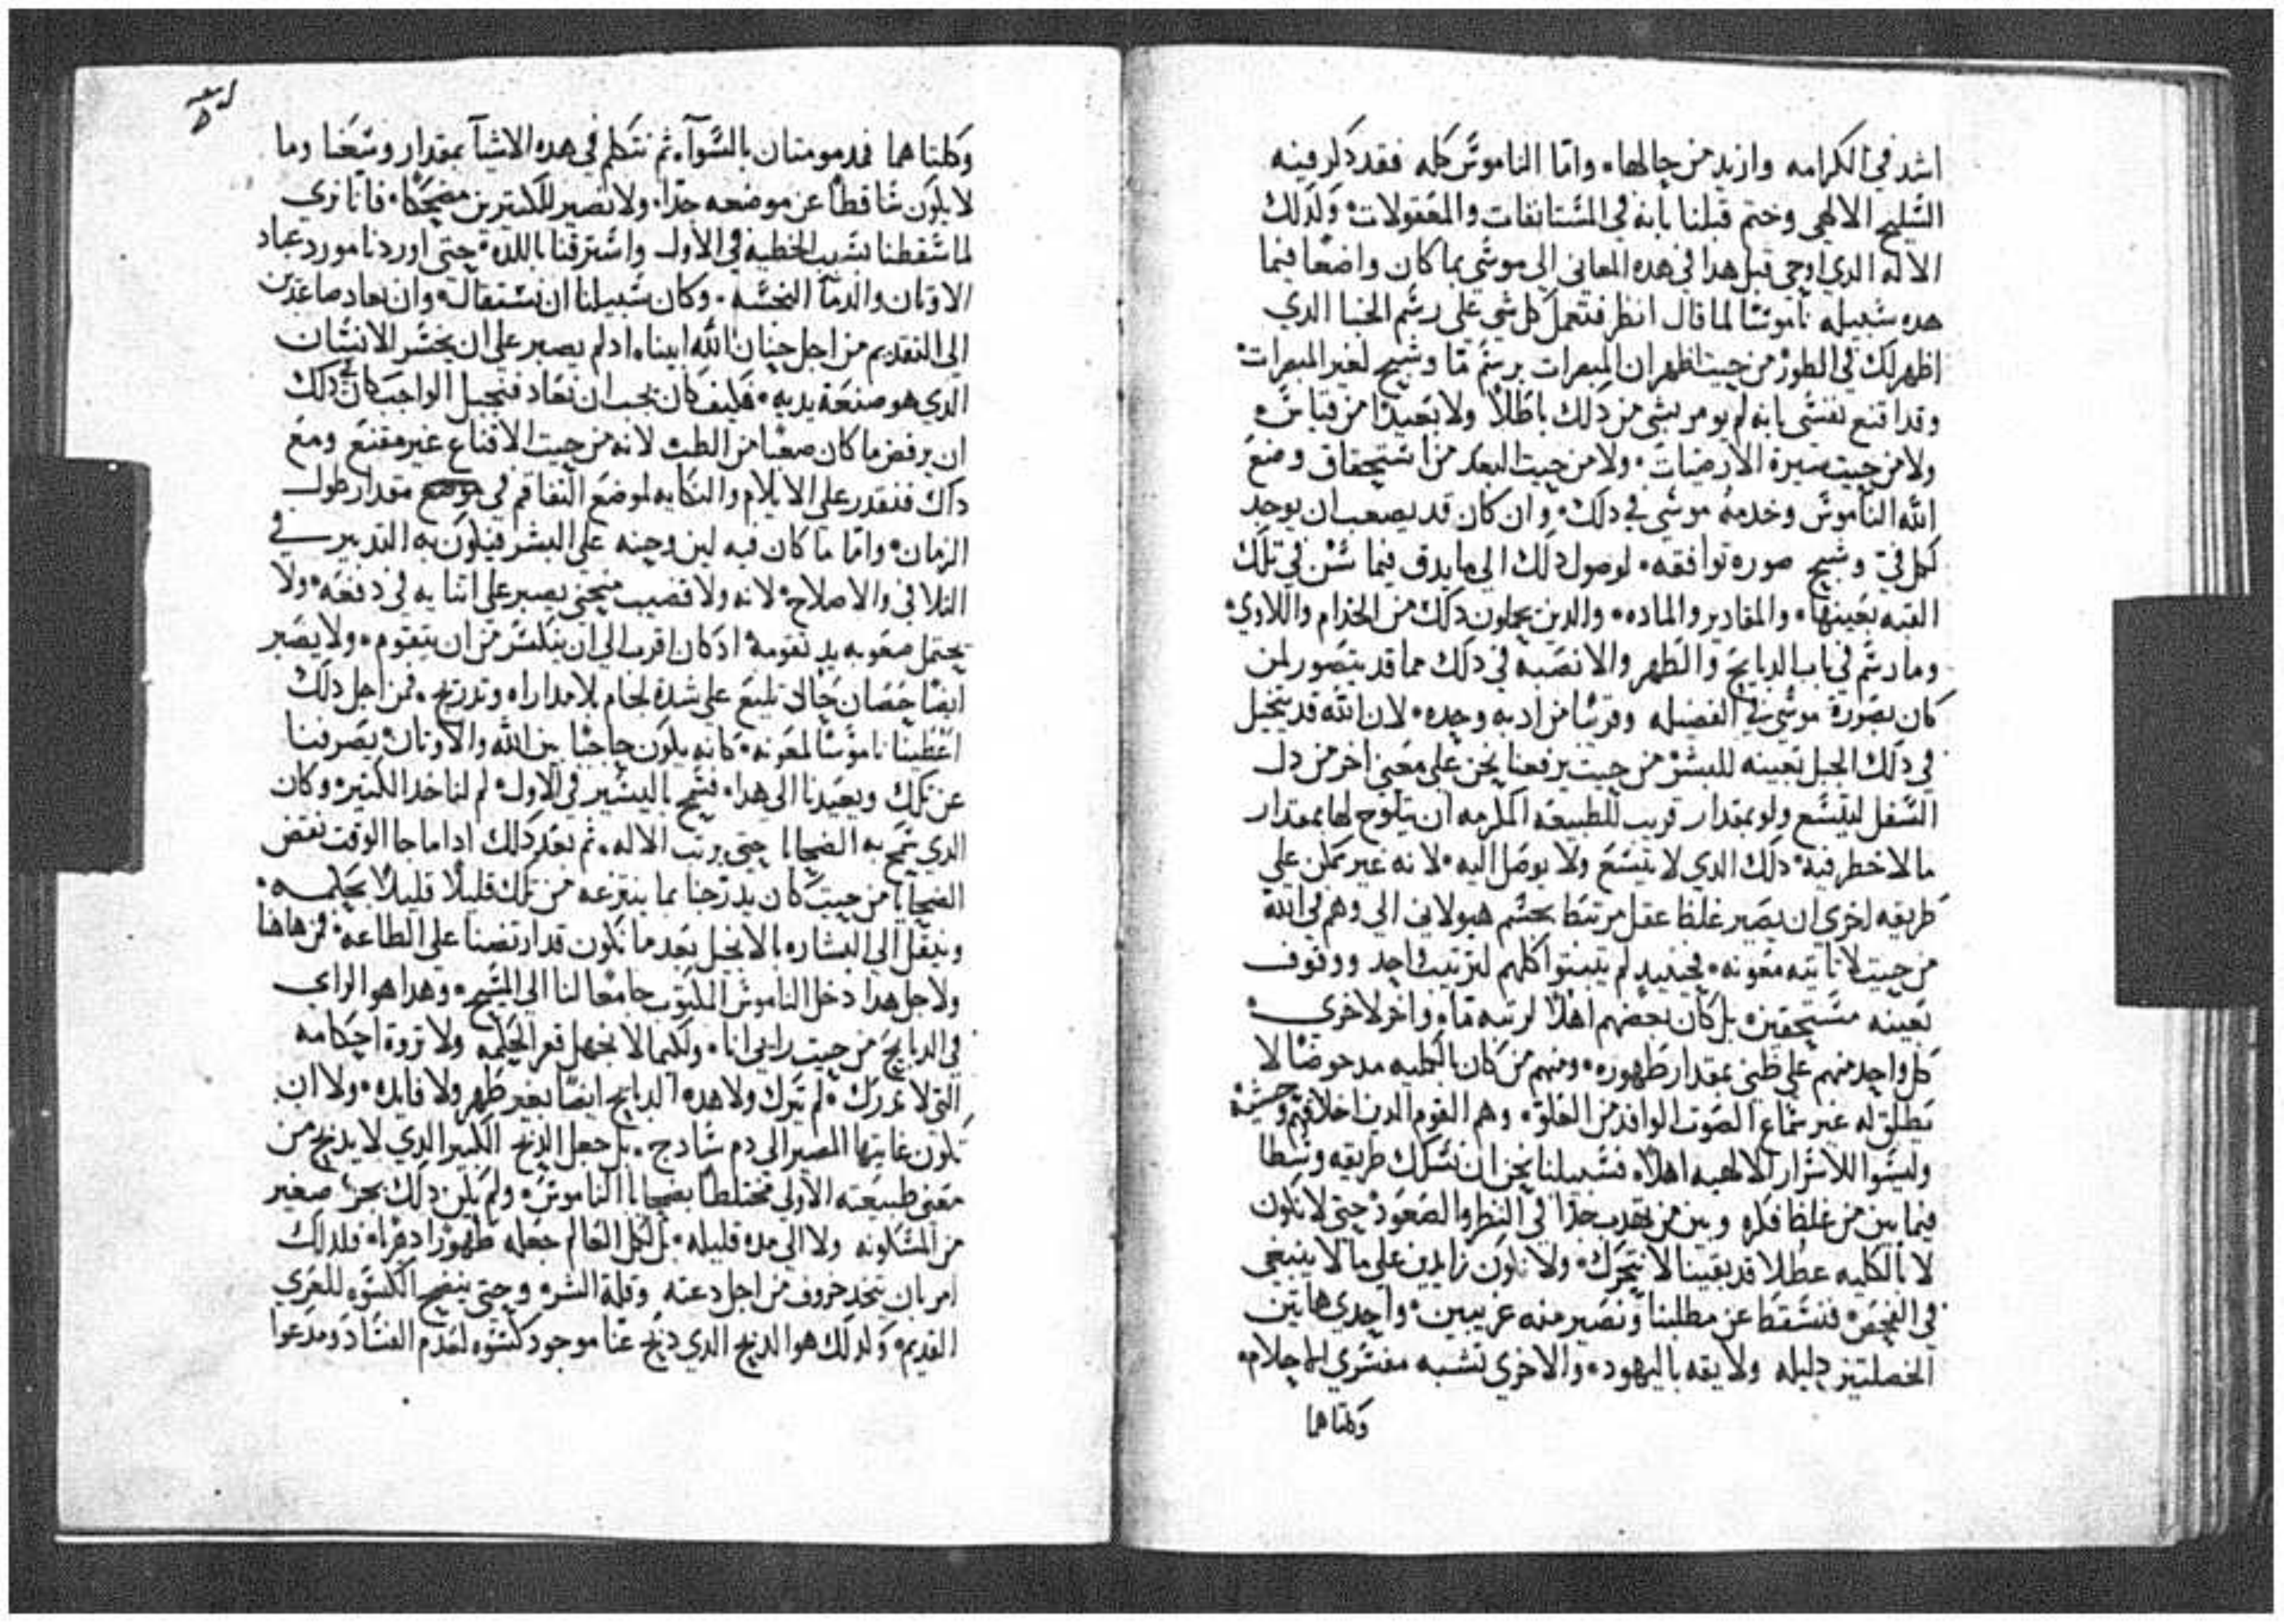 اشد في الكرامه وازيد من حالها٠ واما الناموس كله فقد ذكر فينه
السليح الالهي وختم قبلنا بانه في المستانفات والمعقولات٠ ولذلك
الاله الدي اوحي قبل هدا في هده المعاني الي موسي بما كان واضعا فيما
هده سبيله ناموسا لما قال انظر فتعمل كل شي علي رسم الخبا الدي
اظهر لك في الطور من حيت اظهر ان المبصرات برسم ما وشبح لغير المبصرات٠
وقد اقنع نفسي بانه لم يومر بشي من دلك باطلا ولا بعيدا من قياس٠
ولا من حيت سيرة الارضيات٠ ولا من حيت البعد من استحقاق وضع
الله الناموس وخدمه موسي في دلك٠ وان كان قد يصعب ان يوجد
لكل في وشبح صوره توافقه٠ لوصول دلك الي ما يدق فيما سن في تلك
القبه بعينها٠ والمقادير والماده٠ والدين يحملون دلك من الخدام واللاوي٠
وما رسم في باب الدبايح والطهر والانصبه في دلك مما قد يتصور لمن
كان بصورة موسي في الفضيله وقربنا من ادبه وحده٠ لان الله قد يتخيل
في دلك الجبل بعينه للبشر من حيت يرفعنا نحن علي معني اخر من دل
السفل ليتسع ولو بمقدار قريب للطبيعه المكرمه ان يتلوح لها بمقدار
ما لا خطر فيه٠ دلك الدي لا يتسع ولا يوصل اليه٠ لانه غير ممكن علي
طريقه اخري ان يصير غلظ عقل مرتبط بجسم هيولاني الي وهم في الله
من حيت لا تاتيه معونه٠ فحينيد لم يتبتوا كلهم لترتيب احد ووقوف
بعينه مستحقين٠ بل كان بعضهم اهلا لرتبه ما٠ واخر لاخري٠
كل واحد منهم علي ظني بمقدار طهوره٠ ومنهم من كان بالكليه مدحوضا لا
يطلق له غير سماع الصوت الوافد من العلو٠ وهم القوم الدين اخلاقهم وحشيه
وليسوا للاسرار الالهيه اهلا٠ فسبيلنا نحن ان نسلك طريقه وسطا
فيما بين من غلظ فكره وبين من يهدب جدا في النظر والصعود٠ حتي لا نكون
لا بالكليه عطلا قد بقينا لا نتحرك٠ ولا نكون زايدين علي ما لا ينبغي
في الفحص٠ فنسقط عن مطلبنا ونصير منه غريبين٠ واحدي هاتين
الخصلتين دليله ولايقه باليهود٠ والاخري تشبه مفسري الاحلام٠
وكلتاهما
وكلتاهما فمدمومتان بالسوآ٠ ثم نتكلم في هده الاشيآ بمقدار وسعنا وما
لا يكون ساقطا عن موضعه جدا٠ ولا نصير للكتيرين مضحكا٠ فانا نري
لما سقطنا بسبب الخطيه في الاول واسترقنا باللده٠ حتي اوردنا مورد عباد
الاوتان والدمآ النجسه٠ وكان سبيلنا ان نستقال٠ وان نعاد صاعدين
الي القديم من اجل حنان الله ابينا٠ اد لم يصبر علي ان يخسر الانسان
الدي هو صنعة يديه٠ فكيف كان يجب ان نعاد فنجيل الواجب كان في دلك
ان يرفض ما كان صعبا من الطب لانه من حيت الاقناع غير مقنع ومع
داك فنقدر علي الايلام والنكايه لموضع التفاقم في موضع مقدار طول
الزمان٠ واما ما كان فيه لين وحينه علي البشر فيكون به التدبير في
التلافي والاصلاح٠ لانه ولا قضيب منحني يصبر علي انتنايه في دفعه٠ ولا
يحتمل صعوبه يد تقومه٠ اد كان اقرب الي ان ينكسر من ان يتقوم٠ ولا يصبر
ايضا حصان حالي تليع علي شدة لجام بلا مداراه وتدريج٠ فمن اجل دلك
اعطينا ناموسا لمعونه٠ كانه يكون حاجبا بين الله والاوتان٠ يصرفنا
عن تلك ويعيدنا الي هدا٠ فسمح باليسير في الاول٠ لم لناخد الكتير٠ وكان
الدي سمح به الضحايا حتي يرتب الاله٠ ثم بعد دلك ادا ما جا الوقت نقض
الضحايا من حيت كان يدرجنا بما ينتزعه من تلك قليلا قليلا بحكمه٠
وينقل الي البشاره بالانجيل بعد ما نكون قد ارتضينا علي الطاعه٠ فمن هاهنا
ولاجل هدا دخل الناموس المكتوب جامعا لنا الي المسيح٠ وهدا هو الراي
في الدبايح من حيت رايي انا٠ ولكيما لا نجهل قعر الحكمه ولا تروة احكامه
التي لا تدرك٠ لم تترك ولا هده الدبايح ايضا بغير طهر ولا فايده٠ ولا ان
تكون غايتها المصير الي دم سادج٠ بل جعل الدبح الكبير الدي لا يدبح من
معني طبيعته الاولي مختلطا بضحايا الناموس٠ ولم يكن دلك بجزء صغير
من المسكونه ولا الي مده قليله٠ بل لكل العالم جعله طهورا دهرا٠ فلدلك
امر بان يتخد خروف من اجل دعته وقلة الشر٠ وحتي ينضح الكسوه للعري
القديم٠ ولدلك هو الدبح الدي دبح عنا موجود كسوه لعدم الفساد ومدعوا